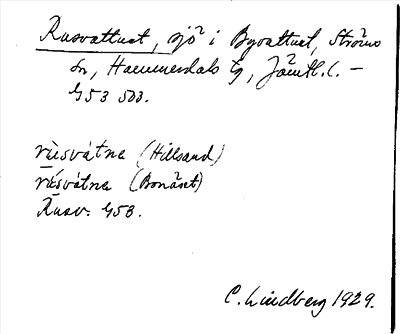 Rusvattnet, sjö i Byvattnet, Ströms
sn, Hammerdals tg, Jämtl. l. –
G53 503.
rùsvátne (Hillsand)
rúsvátne (Bonäset)
Rusv. G53.
C. Lindberg 1929.